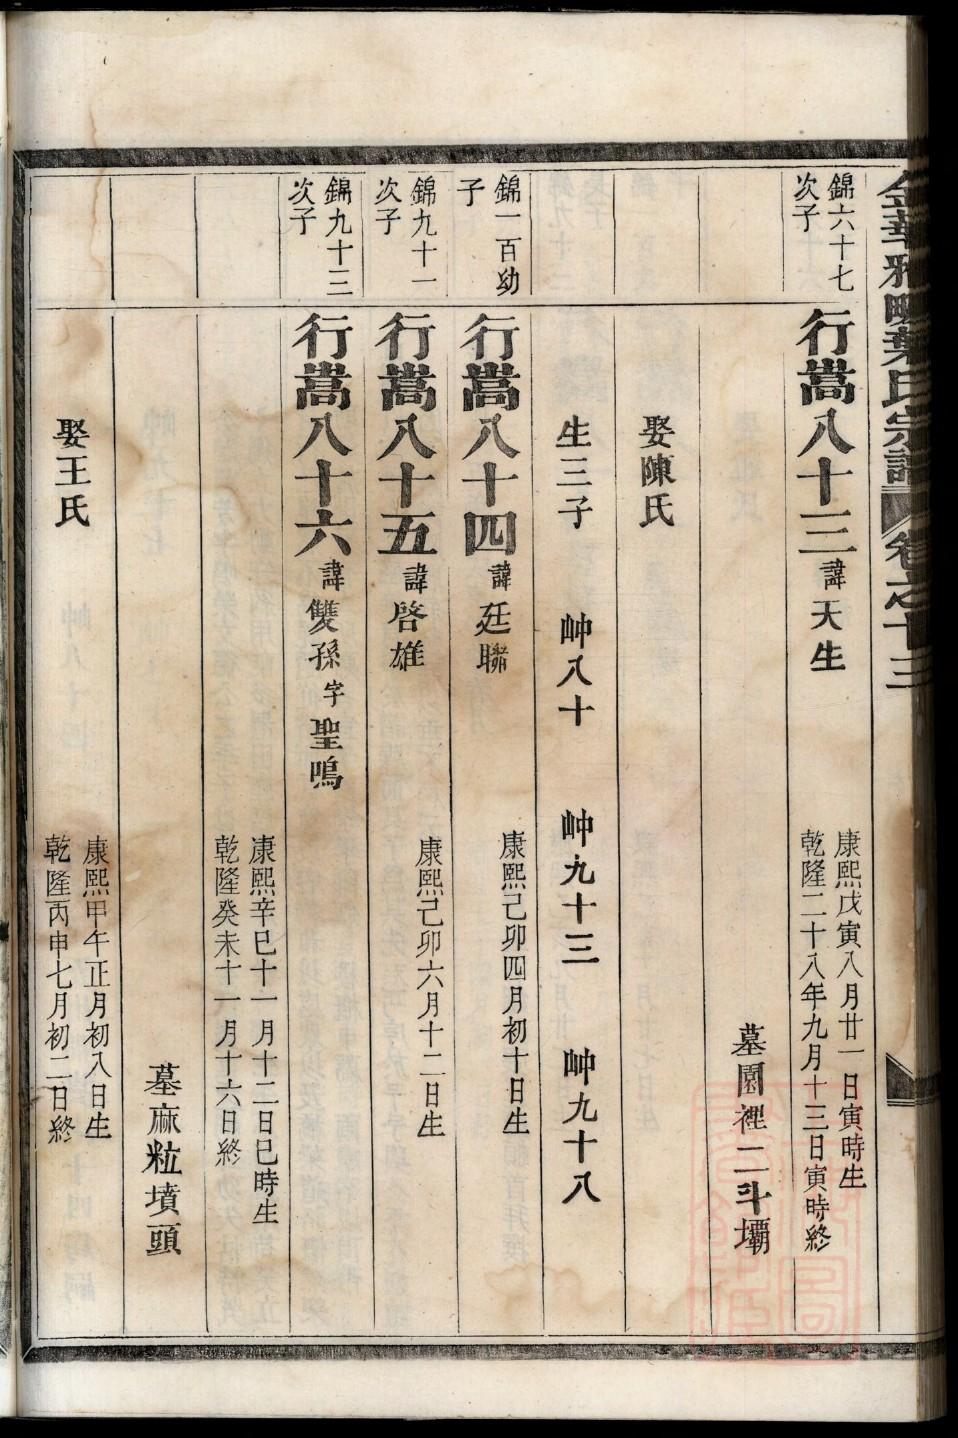 金華雅畈葉氏宗譜 卷之十三
錦六十七
次子
行嵩八十三 諱天生
康熙戊寅八月廿一日寅時生
乾隆二十八年九月十三日寅時終
墓園裡二斗壩
娶陳氏
生三子 衶八十 衶九十三 衶九十八
錦一百幼
子
行嵩八十四 諱廷聯
康熙己卯四月初十日生
錦九十一
次子
行嵩八十五 諱啓雄
康熙己卯六月十二日生
錦九十三
次子
行嵩八十六 諱雙孫 字聖鳴
康熙辛巳十一月十二日巳時生
乾隆癸未十一月十六日終
墓麻粒墳頭
娶王氏
康熙甲午正月初八日生
乾隆丙申七月初二日終